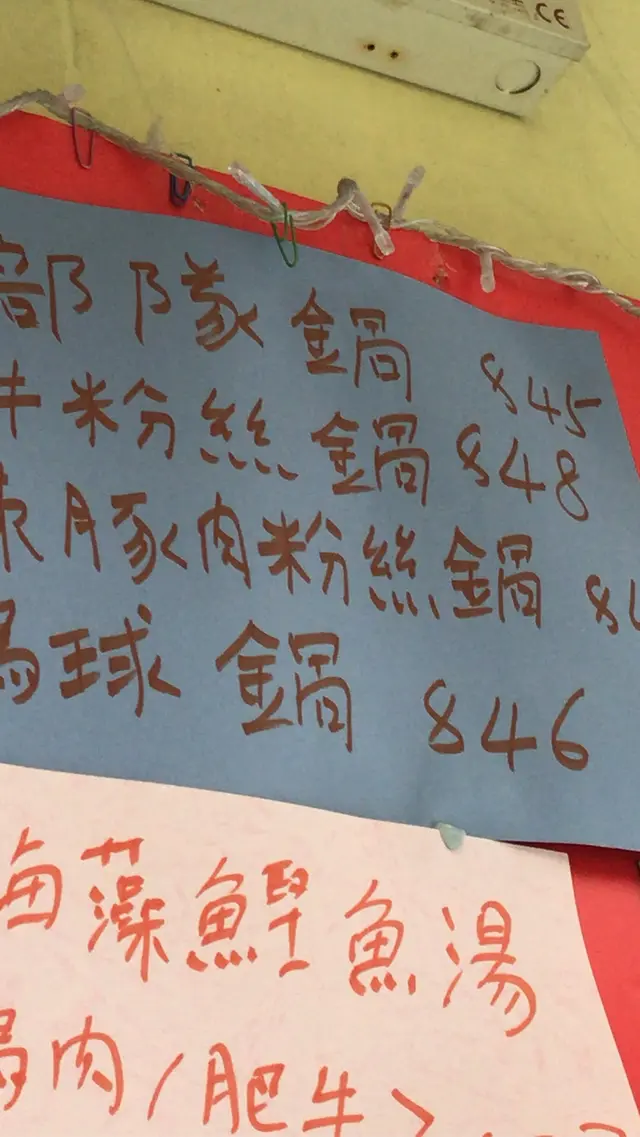 CE
部隊鍋 845
牛粉絲鍋 848
豚肉粉絲鍋 84
球鍋 846
海藻鰹魚湯
肉/肥牛